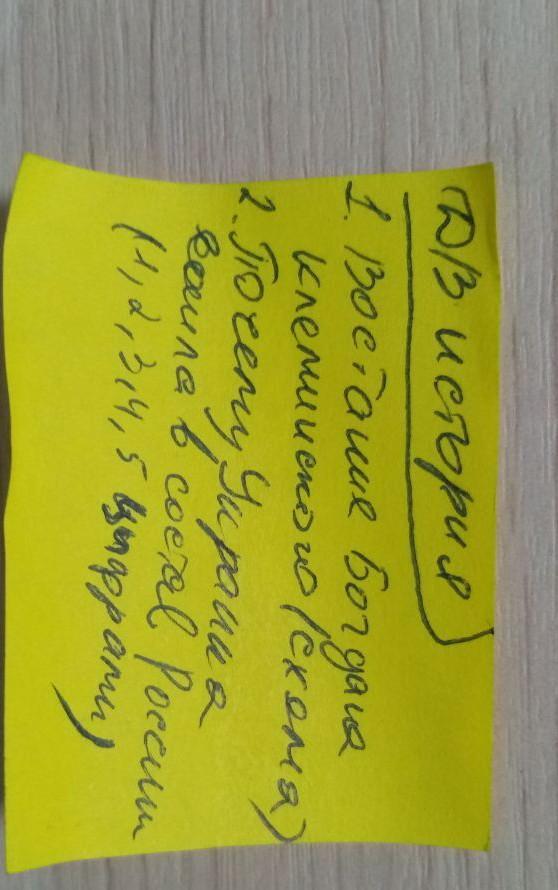 Д/З история
1. Востание Богдана
Клемииского (схема)
2. Почему Украина
вошла в состав России
(1, 2, 3, 4, 5 цифрами)